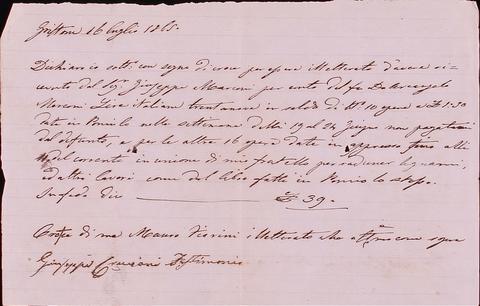 16 luglio 1865.
Dichiaro io sott: con segno di croce per essere illetterato d'aver ri=
cevuto dal Sig: Giuseppe Marconi per conto del fu Dr Arcangelo
Marconi Lire italiane trentanove in saldo di N° 10 opere a £ 1:50
date in nelle settimane delli 19 al 24 Giugno non pagatemi
dal defonto, e per le altre 16 opere date in appresso fino alli
del corrente in unione di mio fratello per radunar legnami,
ed altri lavori come dal libro fatti in lo stesso.
In fede dico £ 39.
Croce di me Mauro illetterato che
Giuseppe Testimonio